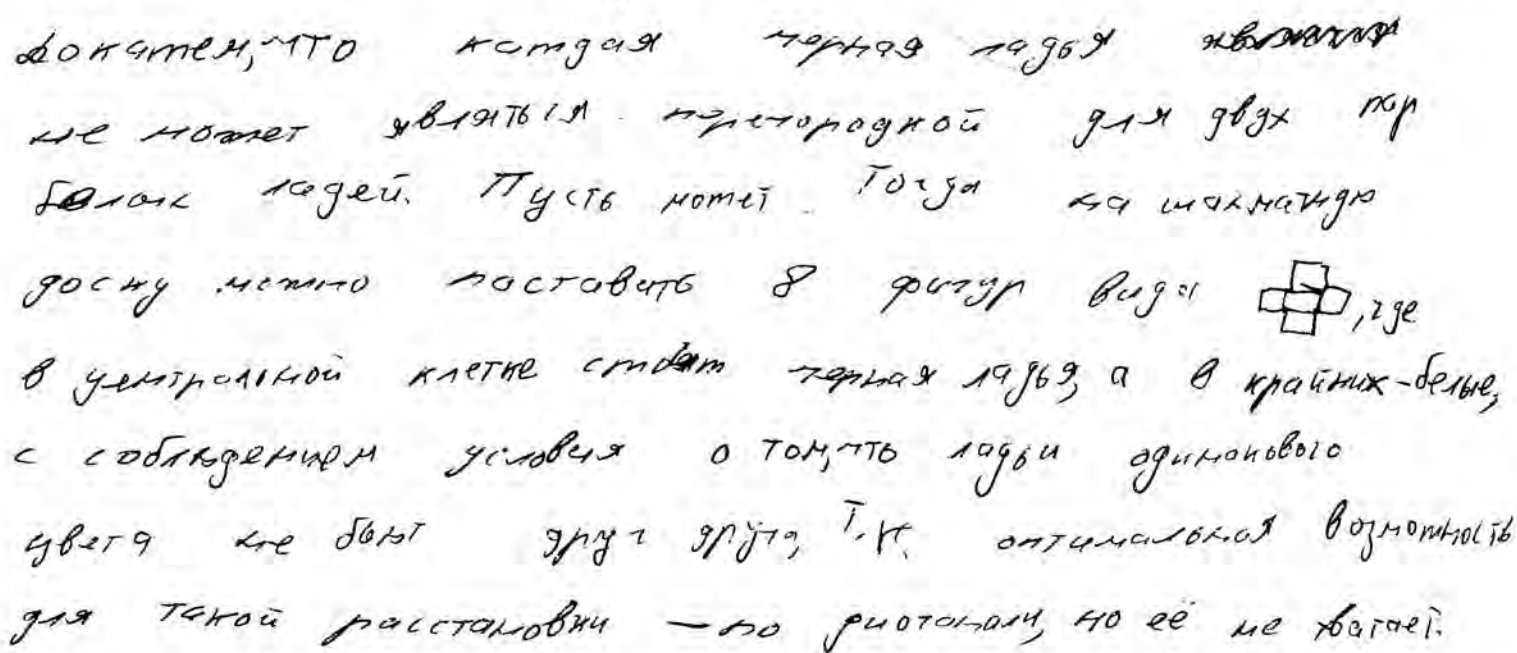 Докажем, что каждая черная ладья
не может являться перегородкой для двух пар
белых ладей. Пусть может. Тогда на шахматную
доску можно поставить 8 фигур вида , где
в центральной клетке стоит черная ладья, а в крайних - белые,
с соблюдением условия о том, что ладьи одинакового
цвета не бьют друг друга, т.к. оптимальная возможность
для такой расстановки — по диагонали, но её не хватает.